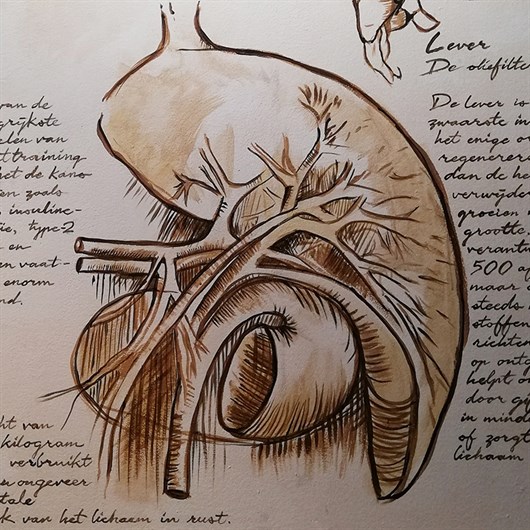 Lever
De oliefilter
van de
grijkste
elen van
ttraining
et de kano
en zoals
insuline-
ie, type-2
en-
en vaat-
enorm
nd.
De lever is
zwaarste in
het enige o
regenerer
dan de he
verwijde
groeien
grootte.
verant
500
maar
steeds
stoffen
richten
op ont
helpt
door gi
in mind
of zorgt
lichaam
ht van
kilogram
verbruikt
en ongeveer
tale
k van het lichaam in rust.